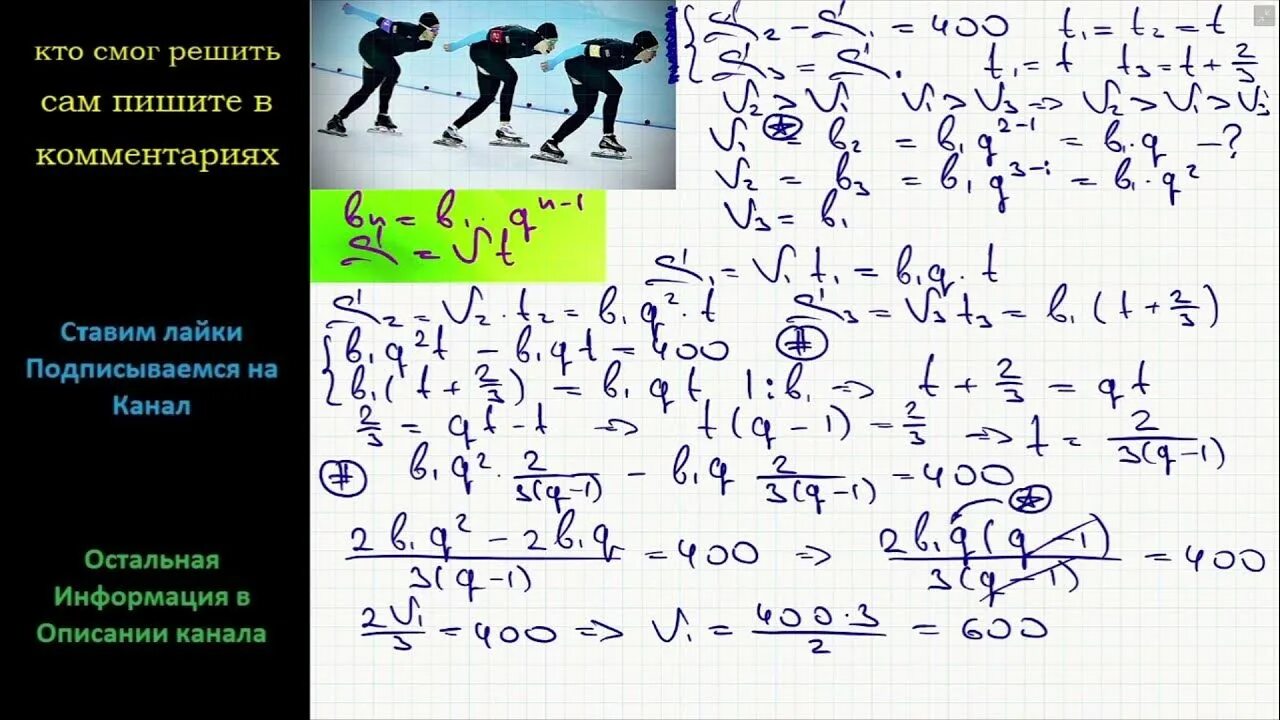 кто смог решить
сам пишите в
комментариях
Ставим лайки
Подписываемся на
Канал
Остальная
Информация в
Описании канала
S₂ − S₁ = 400 t₁ = t₂ = t
S₃ = S₁. t₁ = t t₃ = t + 2/3
V₂ > V₁ V₁ > V₃ => V₂ > V₁ > V₃
V₁ = b₂ = b₁q²⁻¹ = b₁·q −?
V₂ = b₃ = b₁q³⁻¹ = b₁·q²
V₃ = b₁
bₙ = b₁·qⁿ⁻¹
S = Vt
S₁ = V₁t₁ = b₁q·t
S₂ = V₂·t₂ = b₁q²·t S₃ = V₃t₃ = b₁(t + 2/3)
{ b₁q²t − b₁qt = 400 #
{ b₁(t + 2/3) = b₁qt |:b₁ => t + 2/3 = qt
2/3 = qt − t => t(q − 1) = 2/3 => t = 2/3(q−1)
# b₁q²·2/3(q−1) − b₁q 2/3(q−1) = 400
2b₁q² − 2b₁q/3(q−1) = 400 => 2b₁q(q−1)/3(q−1) = 400
2V₁/3 = 400 => V₁ = 400·3/2 = 600